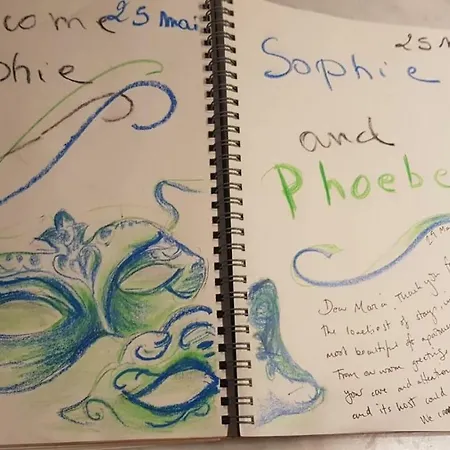 come 25 Mai
phie
25 M
Sophie
and
Phoebe
Dear Maria. Thank you f
The loveliest of stays
most beautiful of apartme
From our warm greetings
your care and attention
and its host could
We